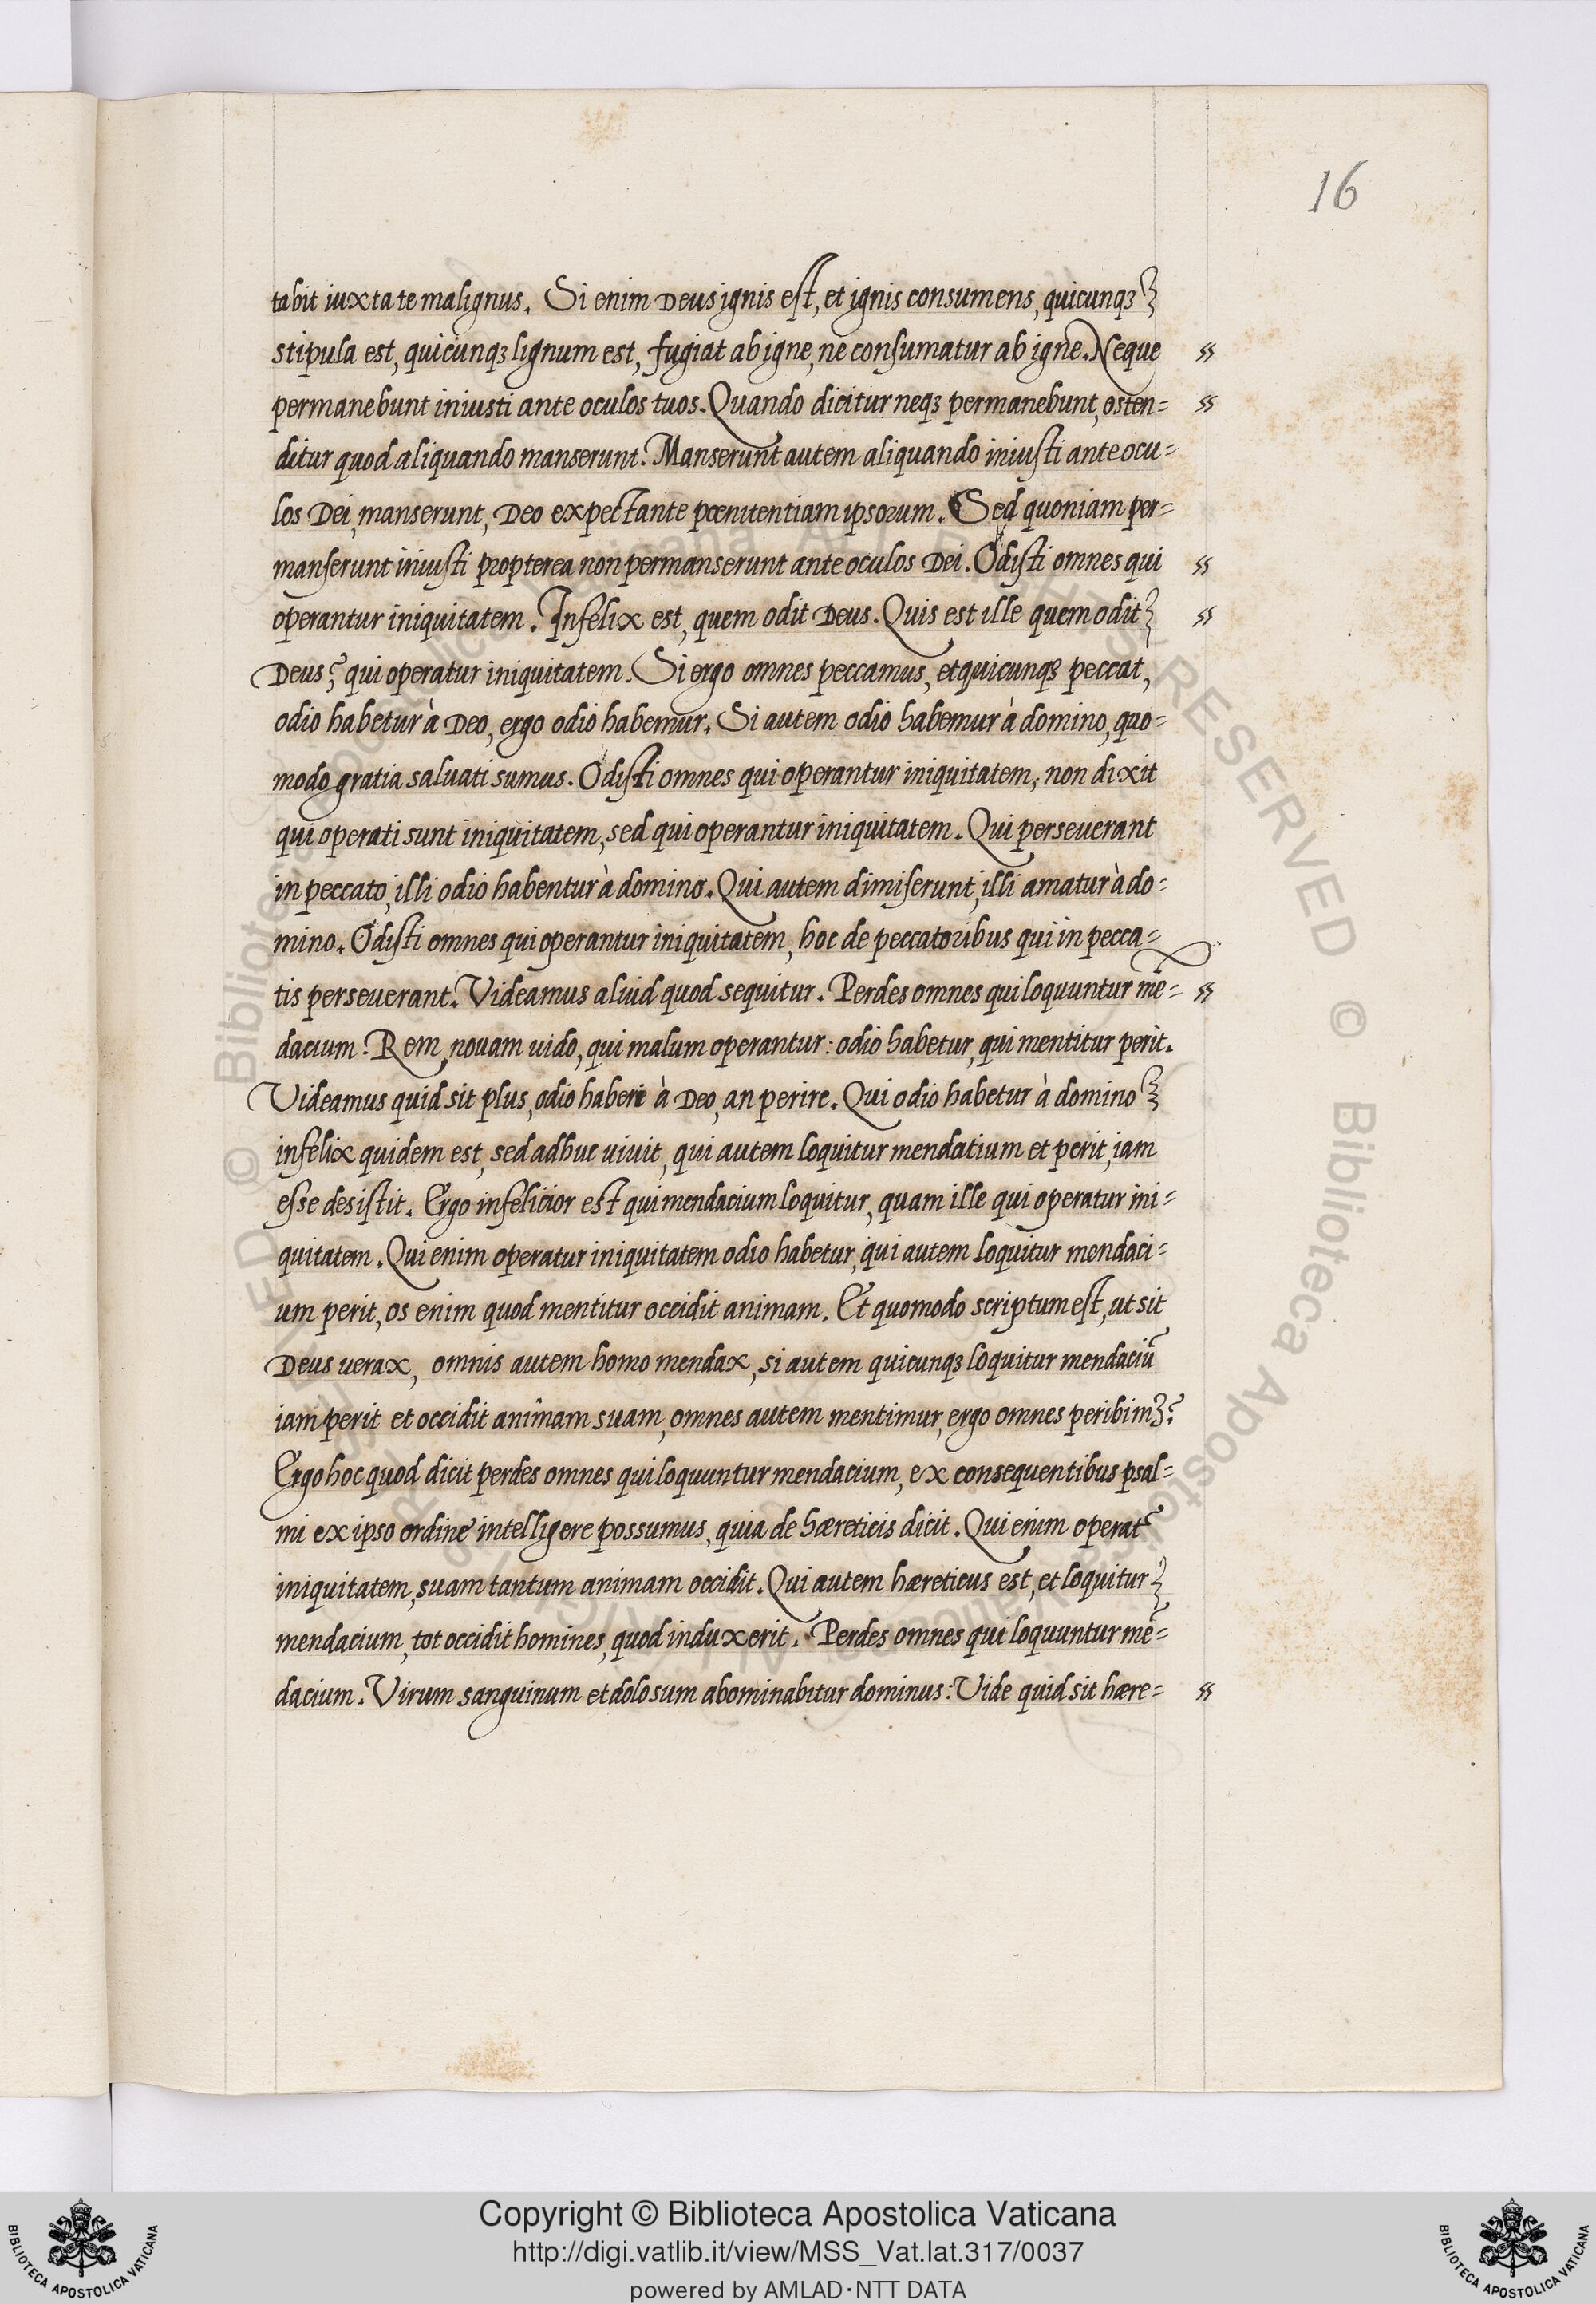 16
tabit iuxta te malignus. Si enim Deus ignis est, et ignis consumens, quicunqꝫ
stipula est, quicunqꝫ lignum est, fugiat ab igne, ne consumatur ab igne. Neque
permanebunt iniusti ante oculos tuos. Quando dicitur neqꝫ permanebunt, osten=
ditur quod aliquando manserunt. Manserunt autem aliquando iniusti ante ocu=
los Dei, manserunt, Deo expectante pœnitentiam ipsorum. Sed quoniam per=
manserunt iniusti propterea non permanserunt ante oculos Dei. Odisti omnes qui
operantur iniquitatem. Infelix est, quem odit Deus. Quis est ille quem odit
Deus? qui operatur iniquitatem. Si ergo omnes peccamus, et quicunqꝫ peccat,
odio habetur à Deo, ergo odio habemur. Si autem odio habemur à domino, quo=
modo gratia saluati sumus. Odisti omnes qui operantur iniquitatem; non dixit
qui operati sunt iniquitatem, sed qui operantur iniquitatem. Qui perseuerant
in peccato, illi odio habentur à domino. Qui autem dimiserunt, illi amatur à do=
mino. Odisti omnes qui operantur iniquitatem, hoc de peccatoribus qui in pecca=
tis perseuerant. Videamus aliud quod sequitur. Perdes omnes qui loquuntur mē=
dacium. Rem nouam uido, qui malum operantur: odio habetur, qui mentitur perit.
Videamus quid sit plus, odio habere à Deo, an perire. Qui odio habetur à domino
infelix quidem est, sed adhuc uiuit, qui autem loquitur mendatium et perit, iam
esse desistit. Ergo infelicior est qui mendacium loquitur, quam ille qui operatur ini=
quitatem. Qui enim operatur iniquitatem odio habetur, qui autem loquitur mendaci=
um perit, os enim quod mentitur occidit animam. Et quomodo scriptum est, ut sit
Deus uerax, omnis autem homo mendax, si autem quicunqꝫ loquitur mendaciū
iam perit et occidit animam suam, omnes autem mentimur, ergo omnes peribimꝫ?
Ergo hoc quod dicit perdes omnes qui loquuntur mendacium, ex consequentibus psal=
mi ex ipso ordine intelligere possumus, quia de hæreticis dicit. Qui enim operat᷑
iniquitatem, suam tantum animam occidit. Qui autem hæreticus est, et loquitur
mendacium, tot occidit homines, quod induxerit. Perdes omnes qui loquuntur mē=
dacium. Virum sanguinum et dolosum abominabitur dominus: Vide quid sit hære=
Copyright © Biblioteca Apostolica Vaticana
http://digi.vatlib.it/view/MSS_Vat.lat.317/0037
powered by AMLAD·NTT DATA
BIBLIOTECA APOSTOLICA VATICANA
BIBLIOTECA APOSTOLICA VATICANA